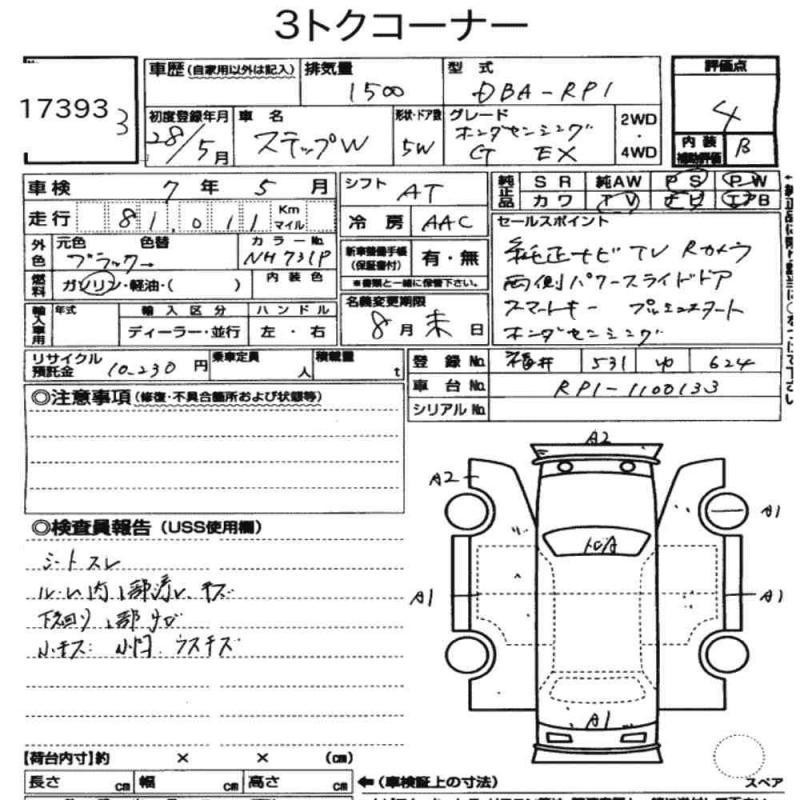 3トクコーナー
17393
3
車歴 (自家用以外は記入) 排気量 1500 型式 DBA-RP1
初度登録年月 28/5月 車名 ステップW 形状・ドア数 5W グレード ホンダセンシング G EX 2WD・4WD
評価点 4
内装補助評価 B
車検 7年 5月 シフト AT
純正品 SR 純AW PS PW
カワ TV ナビ エアB
走行 81,011 Km マイル 冷房 AAC
外色 元色 ブラック 色替 カラーNo. NH731P
燃料 ガソリン・軽油・( ) 内装色
新車整備手帳(保証書付) 有・無
※書類と一緒に保管下さい。
セールスポイント
純正ナビ TV Rカメラ
両側パワースライドドア
スマートキー プッシュスタート
ホンダセンシング
輸入車用 年式 輸入区分 ディーラー・並行 ハンドル 左・右
名義変更期限 8月末日
リサイクル預託金 10,230円 乗車定員 人 積載量 t
登録No. 福井 531 ゆ 624
車台No. RP1-1100133
シリアルNo.
◎注意事項 (修復・不具合箇所および状態等)
◎検査員報告 (USS使用欄)
シートスレ
下回り 部サビ
小キズ
ウスキズ
A2
A2
A1
A1
A1
A1
【荷台内寸】約 × × (cm)
長さ cm 幅 cm 高さ cm ←(車検証上の寸法)
スペア